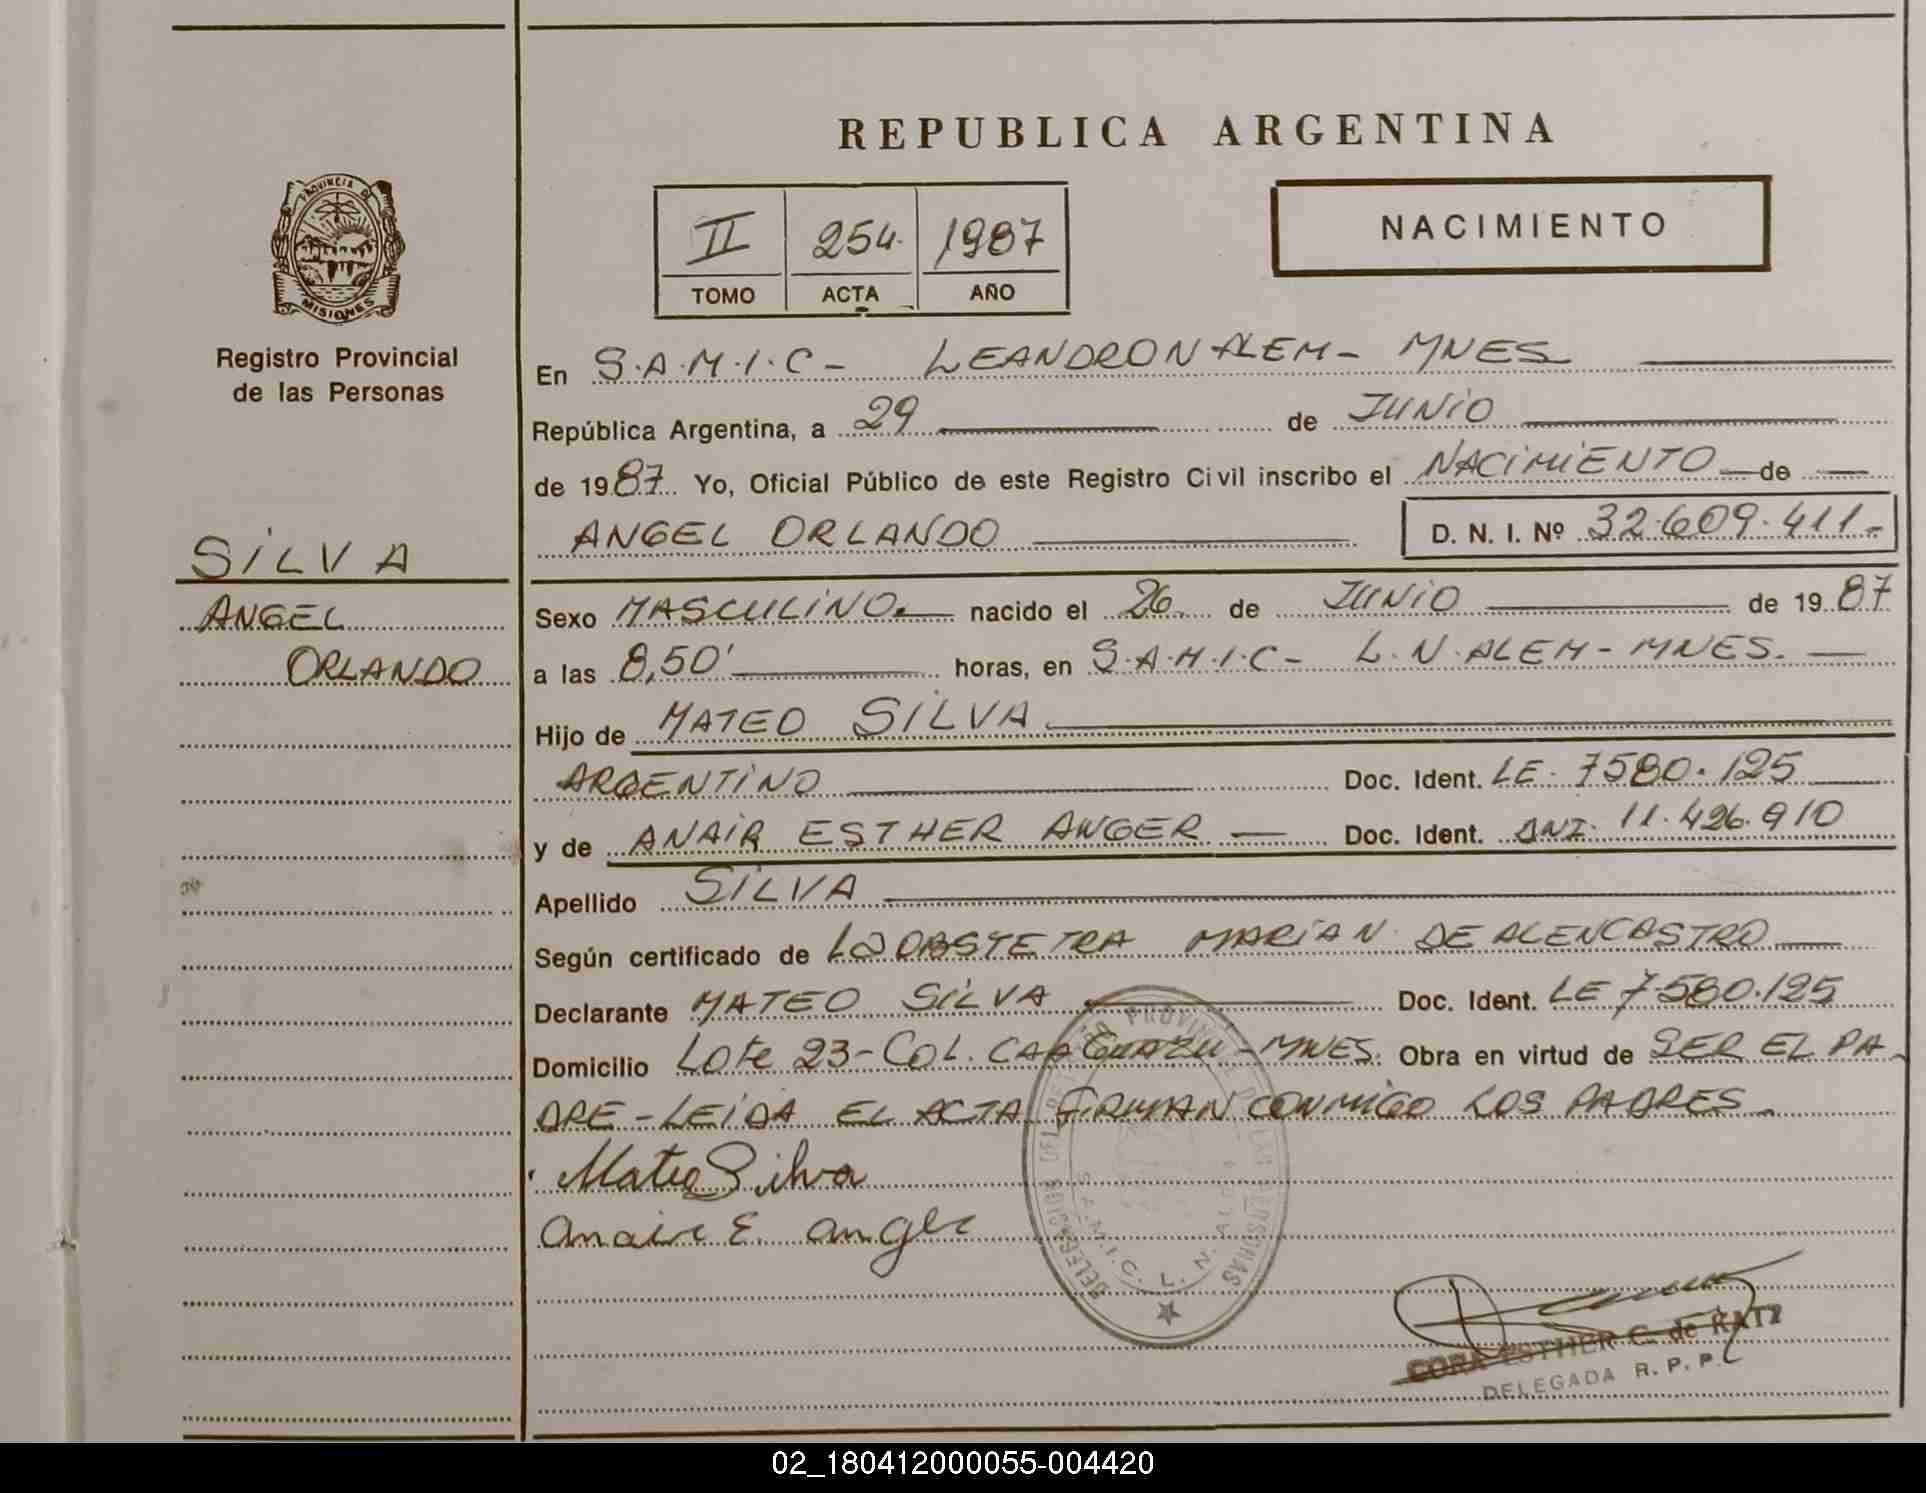 REPUBLICA ARGENTINA
PROVINCIA DE
MISIONES
Registro Provincial
de las Personas
II 254. 1987
TOMO ACTA AÑO
NACIMIENTO
En S.A.M.I.C- LEANDRO N ALEM- MNES
República Argentina, a 29 de JUNIO
de 1987 Yo, Oficial Público de este Registro Civil inscribo el NACIMIENTO de
ANGEL ORLANDO D. N. I. Nº 32.609.411.-
SILVA
ANGEL
ORLANDO
Sexo MASCULINO. nacido el 26 de JUNIO de 1987
a las 8,50' horas, en S.A.M.I.C- L.N.ALEM- MNES.
Hijo de MATEO SILVA
ARGENTINO Doc. Ident. LE. 7580.125
y de ANAIR ESTHER ANGER Doc. Ident. DNI. 11.426.910
Apellido SILVA
Según certificado de La OBSTETRA MARIAN DE ALENCASTRO
Declarante MATEO SILVA Doc. Ident. LE 7.580.125
Domicilio Lote 23-Col. CAAGUAZU-MNES. Obra en virtud de SER EL PA-
DRE-LEIDA EL ACTA FIRMAN CONMIGO LOS PADRES.
Mateo Silva
Anair E. anger
S.A.M.I.C. L. N. ALEM
CORA ESTHER C. de KATZ
DELEGADA R. P. P.
02_180412000055-004420